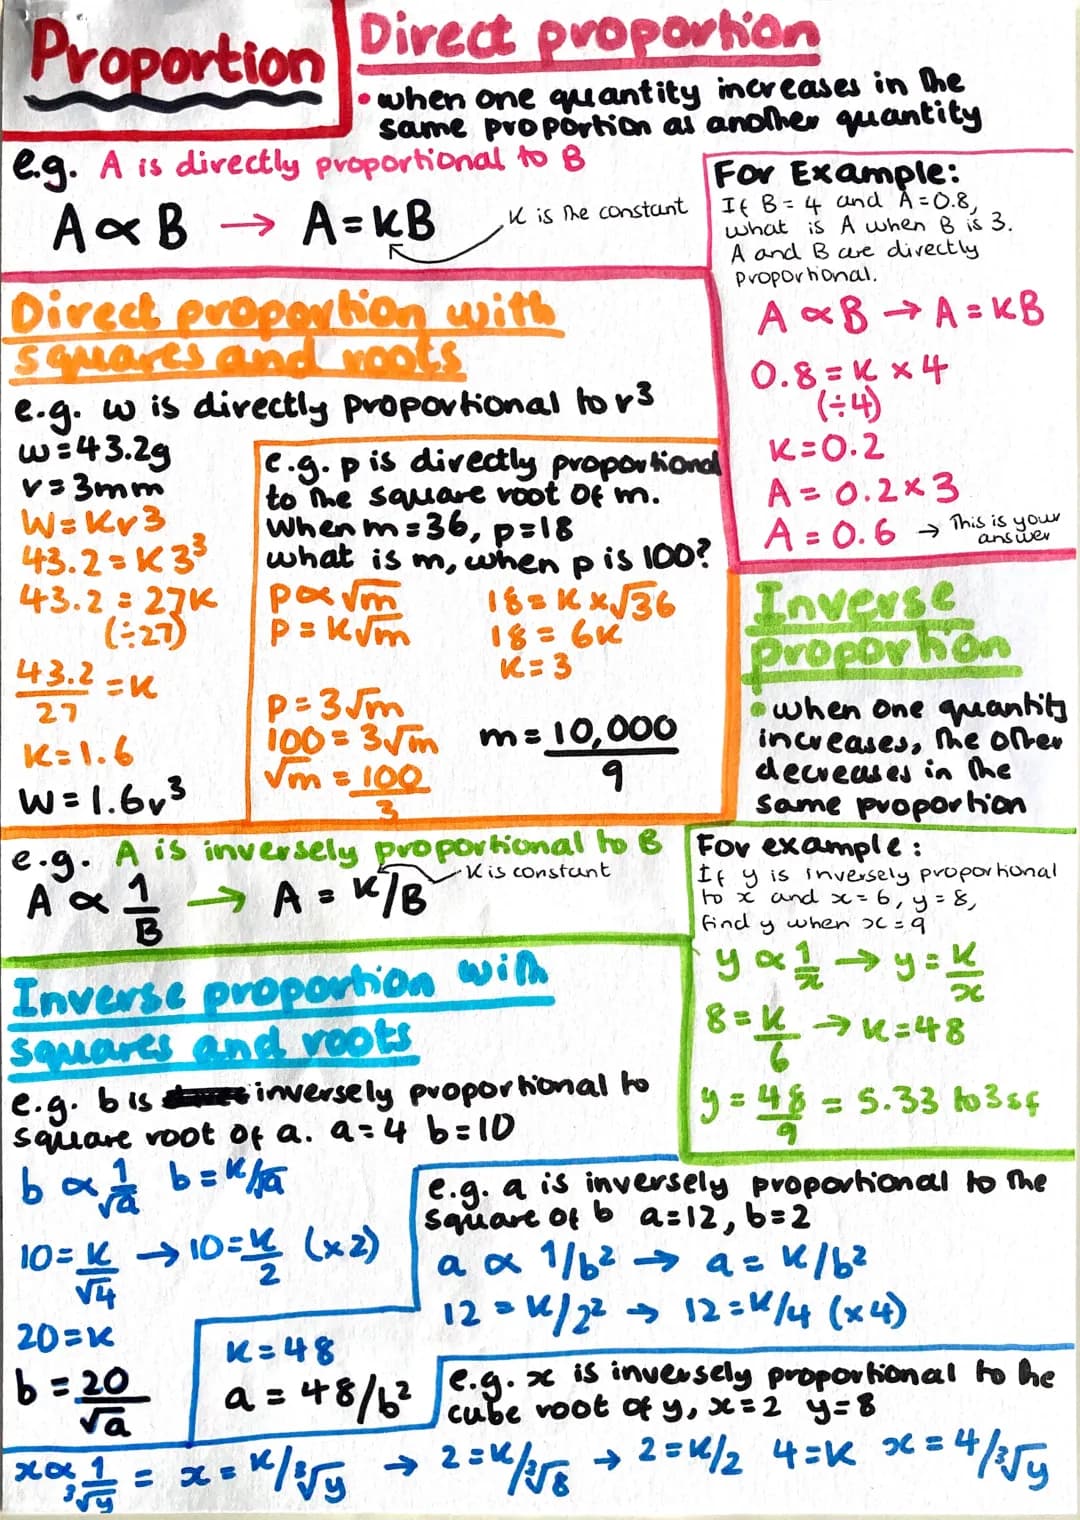 Proportion
Direct proportion
• when one quantity increases in the
same proportion as another quantity
e.g. A is directly proportional to B
A ∝ B → A = KB
K is the constant
For Example:
If B = 4 and A = 0.8,
what is A when B is 3.
A and B are directly
proportional.
A ∝ B → A = KB
0.8 = K × 4
(÷4)
K = 0.2
A = 0.2 × 3
A = 0.6 → This is your
answer
Direct proportion with
squares and roots
e.g. w is directly proportional to r³
w = 43.2g
r = 3mm
W = Kr3
43.2 = K 3³
43.2 = 27K
(÷27)
43.2/27 = K
K = 1.6
W = 1.6r³
e.g. p is directly proportional
to the square root of m.
When m = 36, p = 18
what is m, when p is 100?
p ∝ √m
P = K√m
18 = K × √36
18 = 6K
K = 3
P = 3√m
100 = 3√m
√m = 100/3
m = 10,000/9
Inverse
proportion
• when one quantity
increases, the other
decreases in the
same proportion
e.g. A is inversely proportional to B
A ∝ 1/B → A = K/B
K is constant
For example:
If y is inversely proportional
to x and x = 6, y = 8,
find y when x = 9
y ∝ 1/x → y = K/x
8 = K/6 → K = 48
y = 48/9 = 5.33 to 3sf
Inverse proportion with
squares and roots
e.g. b is inversely proportional to
square root of a. a = 4 b = 10
b ∝ 1/√a b = K/√a
10 = K/√4 → 10 = K/2 (×2)
20 = K
b = 20/√a
e.g. a is inversely proportional to the
square of b a = 12, b = 2
a ∝ 1/b² → a = K/b²
12 = K/2² → 12 = K/4 (×4)
K = 48
a = 48/b²
e.g. x is inversely proportional to the
cube root of y, x = 2 y = 8
x ∝ 1/³√y = x = K/³√y → 2 = K/³√8 → 2 = K/2 4 = K x = 4/³√y